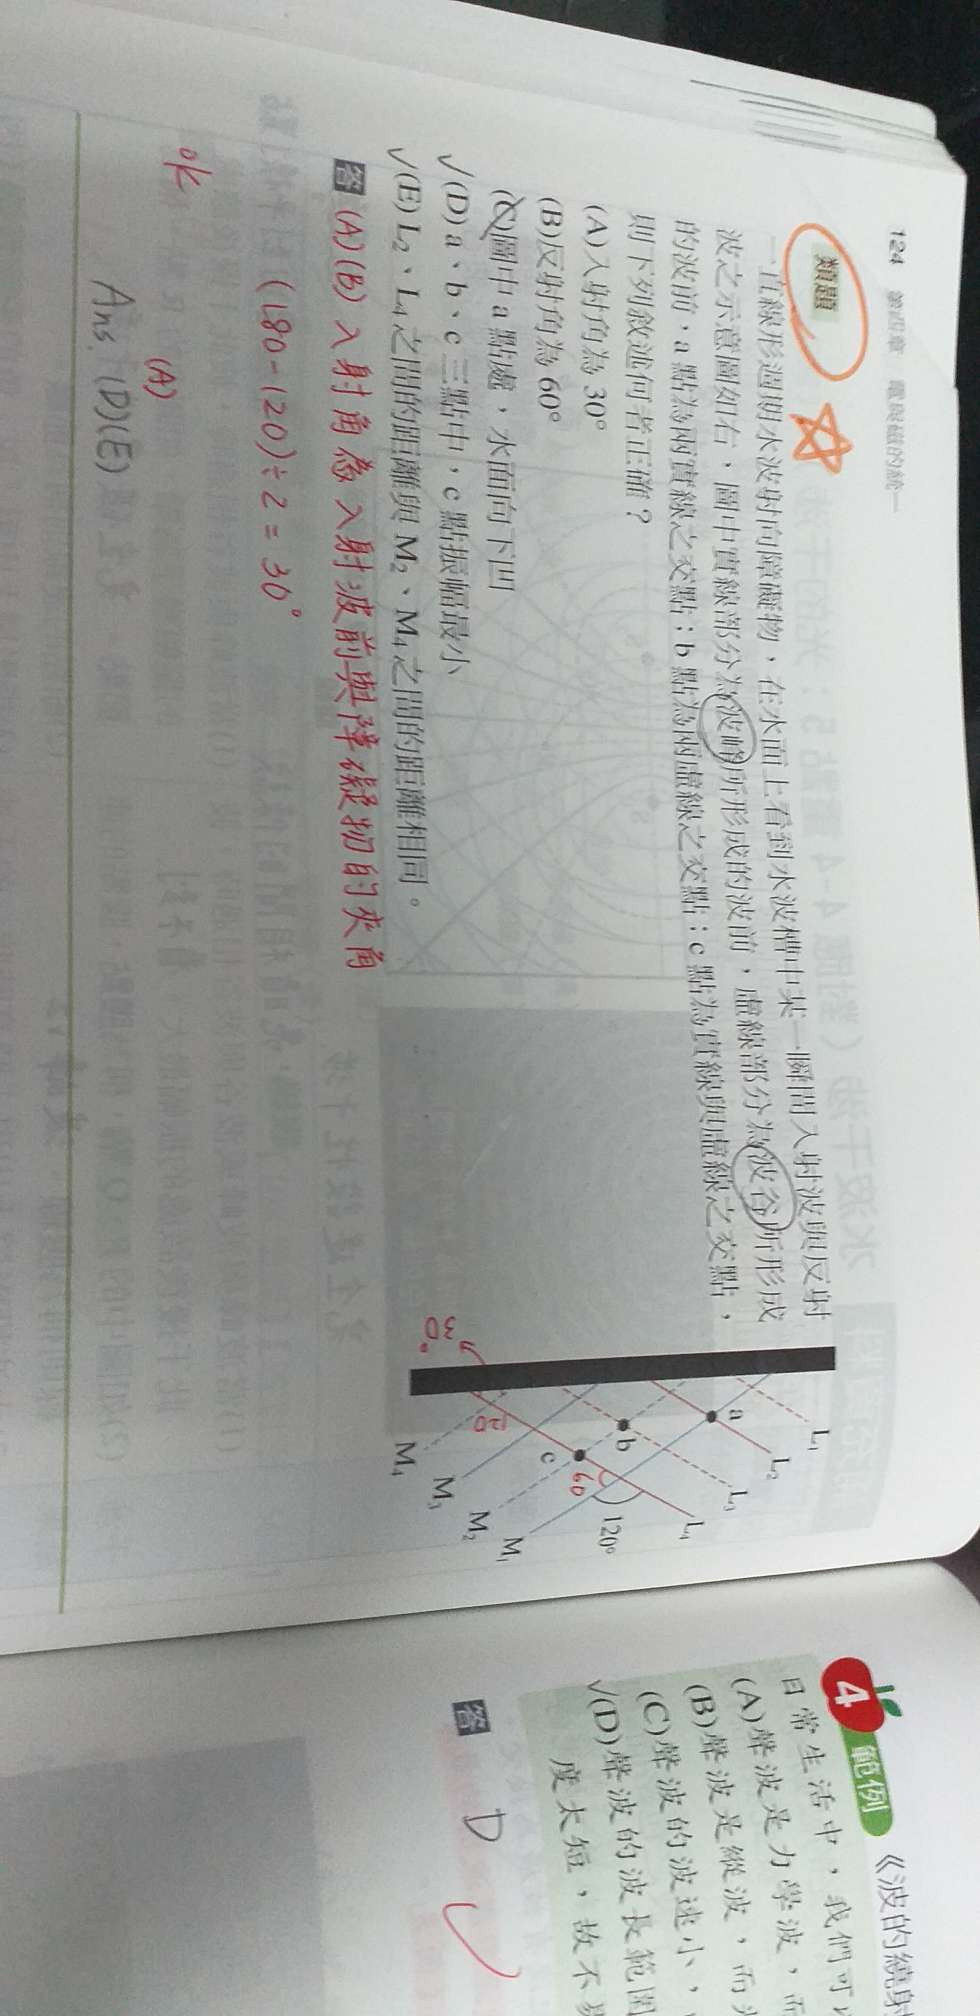 124 第四章 電與磁的統一
類題
一直線形週期水波射向障礙物,在水面上看到水波槽中某一瞬間入射波與反射
波之示意圖如右,圖中實線部分為波峰所形成的波前,虛線部分為波谷所形成
的波前,a 點為兩實線之交點;b 點為兩虛線之交點;c 點為實線與虛線之交點,
則下列敘述何者正確?
(A)入射角為 30°
(B)反射角為 60°
(C)圖中 a 點處,水面向下凹
✓(D) a、b、c 三點中,c 點振幅最小
✓(E) L₂、L₄ 之間的距離與 M₂、M₄ 之間的距離相同。
答 (A)(B) 入射角為入射波前與障礙物的夾角
(180-120)÷2=30°
ok
(A)
Ans. (D)(E)
L₁
L₂
L₃
L₄
a
b
c
60
120°
M₁
M₂
M₃
M₄
30°
4 範例 《波的繞射
日常生活中,我們可
(A)聲波是力學波,而
(B)聲波是縱波,而
(C)聲波的波速小,
✓(D)聲波的波長範圍
度太短,故不
答 D